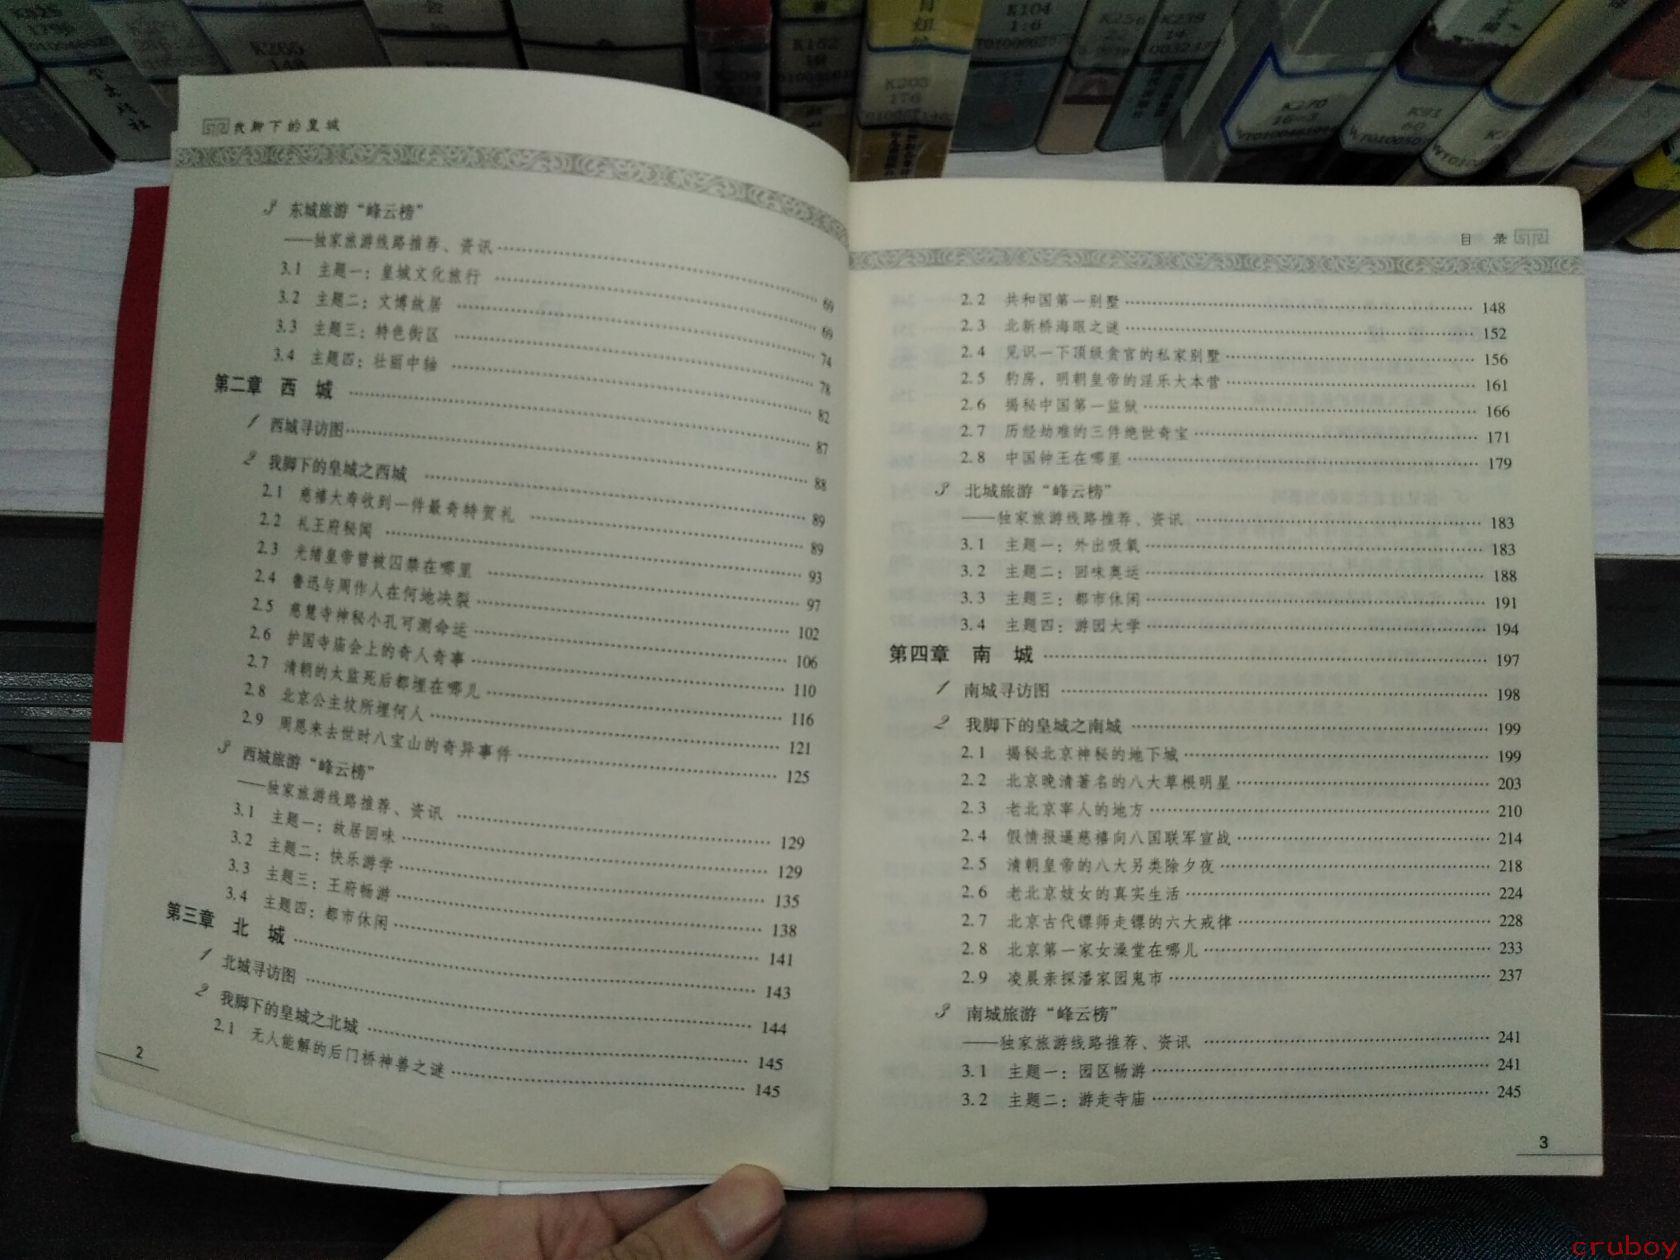 K104
1:6
K203
176
K270
16-3
K91
60
我脚下的皇城
3 东城旅游“峰云榜”
——独家旅游线路推荐、资讯 …… 69
3.1 主题一：皇城文化旅行 …… 69
3.2 主题二：文博故居 …… 74
3.3 主题三：特色街区 …… 78
3.4 主题四：壮丽中轴 …… 82
第二章 西 城 …… 87
1 西城寻访图 …… 88
2 我脚下的皇城之西城 …… 89
2.1 慈禧大寿收到一件最奇特贺礼 …… 89
2.2 礼王府秘闻 …… 93
2.3 光绪皇帝曾被囚禁在哪里 …… 97
2.4 鲁迅与周作人在何地决裂 …… 102
2.5 慈慧寺神秘小孔可测命运 …… 106
2.6 护国寺庙会上的奇人奇事 …… 110
2.7 清朝的太监死后都埋在哪儿 …… 116
2.8 北京公主坟所埋何人 …… 121
2.9 周恩来去世时八宝山的奇异事件 …… 125
3 西城旅游“峰云榜”
——独家旅游线路推荐、资讯 …… 129
3.1 主题一：故居回味 …… 129
3.2 主题二：快乐游学 …… 135
3.3 主题三：王府畅游 …… 138
3.4 主题四：都市休闲 …… 141
第三章 北 城 …… 143
1 北城寻访图 …… 144
2 我脚下的皇城之北城 …… 145
2.1 无人能解的后门桥神兽之谜 …… 145
2
目 录
2.2 共和国第一别墅 …… 148
2.3 北新桥海眼之谜 …… 152
2.4 见识一下顶级贪官的私家别墅 …… 156
2.5 豹房，明朝皇帝的淫乐大本营 …… 161
2.6 揭秘中国第一监狱 …… 166
2.7 历经劫难的三件绝世奇宝 …… 171
2.8 中国钟王在哪里 …… 179
3 北城旅游“峰云榜”
——独家旅游线路推荐、资讯 …… 183
3.1 主题一：外出吸氧 …… 183
3.2 主题二：回味奥运 …… 188
3.3 主题三：都市休闲 …… 191
3.4 主题四：游园大学 …… 194
第四章 南 城 …… 197
1 南城寻访图 …… 198
2 我脚下的皇城之南城 …… 199
2.1 揭秘北京神秘的地下城 …… 199
2.2 北京晚清著名的八大草根明星 …… 203
2.3 老北京宰人的地方 …… 210
2.4 假情报逼慈禧向八国联军宣战 …… 214
2.5 清朝皇帝的八大另类除夕夜 …… 218
2.6 老北京妓女的真实生活 …… 224
2.7 北京古代镖师走镖的六大戒律 …… 228
2.8 北京第一家女澡堂在哪儿 …… 233
2.9 凌晨亲探潘家园鬼市 …… 237
3 南城旅游“峰云榜”
——独家旅游线路推荐、资讯 …… 241
3.1 主题一：园区畅游 …… 241
3.2 主题二：游走寺庙 …… 245
3
cruboy